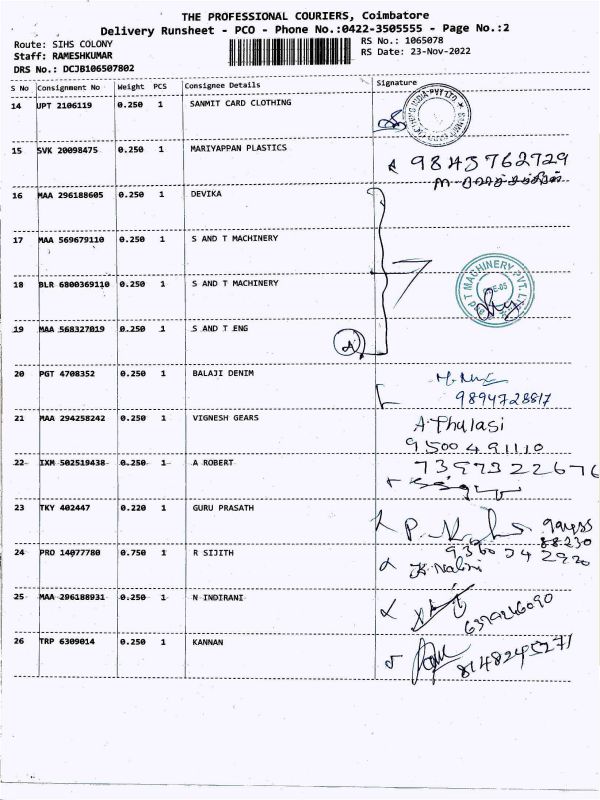 THE PROFESSIONAL COURIERS, Coimbatore
Delivery Runsheet - PCO - Phone No.:0422-3505555 - Page No.:2
Route: SIHS COLONY
RS No.: 1065078
Staff: RAMESHKUMAR
RS Date: 23-Nov-2022
DRS No.: DCJB106507802
S No Consignment No Weight PCS Consignee Details Signature
14 UPT 2106119 0.250 1 SANMIT CARD CLOTHING
15 SVK 20098475 0.250 1 MARIYAPPAN PLASTICS
9843762729
16 MAA 296188605 0.250 1 DEVIKA
17 MAA 569679110 0.250 1 S AND T MACHINERY
18 BLR 6800369110 0.250 1 S AND T MACHINERY
T MACHINERY PVT. LTD
19 MAA 568327019 0.250 1 S AND T ENG
20 PGT 4708352 0.250 1 BALAJI DENIM
9894728817
21 MAA 294258242 0.250 1 VIGNESH GEARS A. Thulasi
9500491110
22 IXM 502519438 0.250 1 A ROBERT 7397322676
23 TKY 402447 0.220 1 GURU PRASATH
88230
24 PRO 14077780 0.750 1 R SIJITH
K. Nalini
25 MAA 296188931 0.250 1 N INDIRANI
6379266090
26 TRP 6309014 0.250 1 KANNAN 8148245271